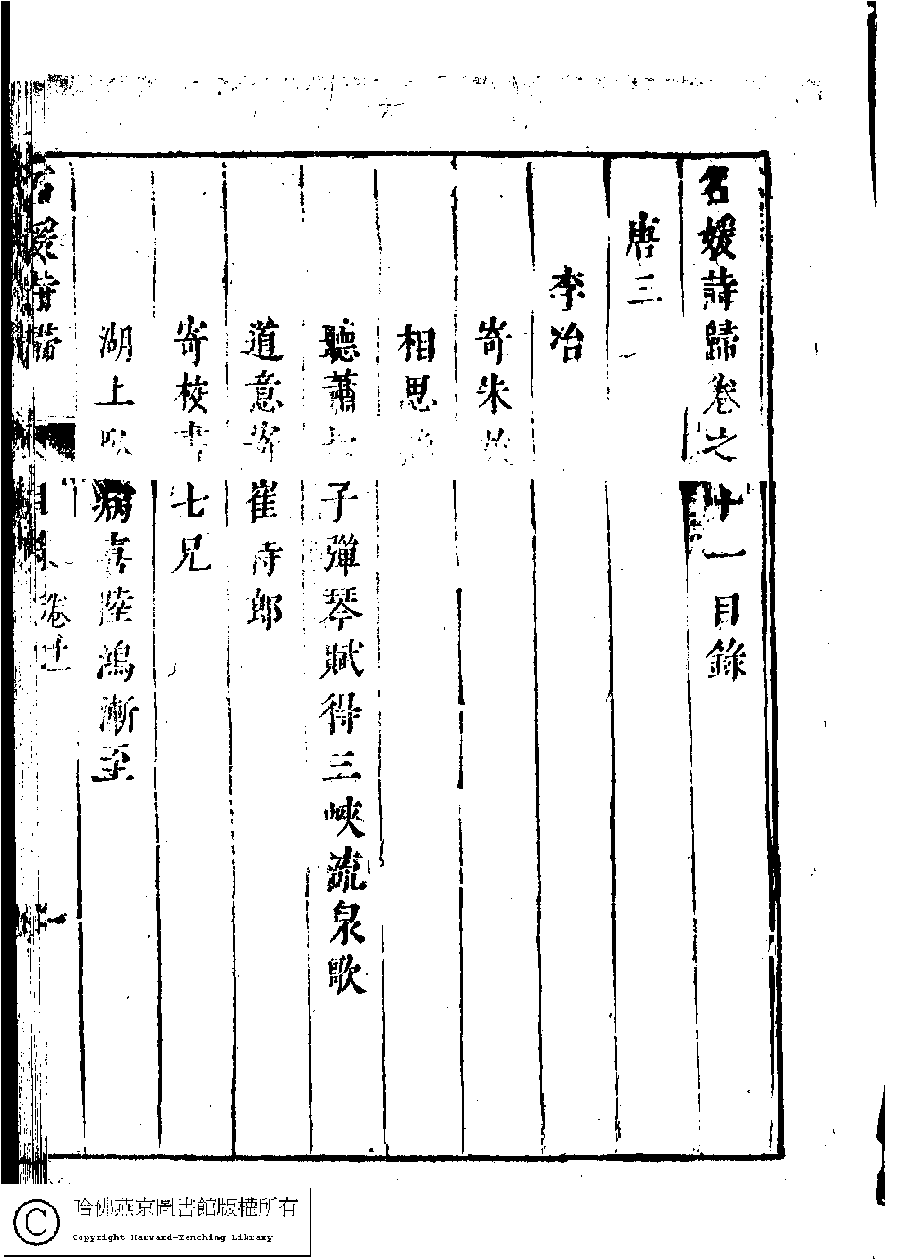 名媛詩歸卷之十一目錄
唐三
李冶
寄朱放
相思
聽蕭叔子彈琴賦得三峽流泉歌
道意寄崔侍郎
寄校書七兄
湖上臥病喜陸鴻漸至
名媛詩歸 目錄 卷十一 一
哈佛燕京圖書館版權所有
Copyright Harvard-Yenching Library